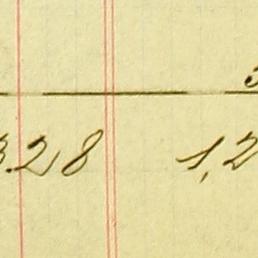 3.28 1,2